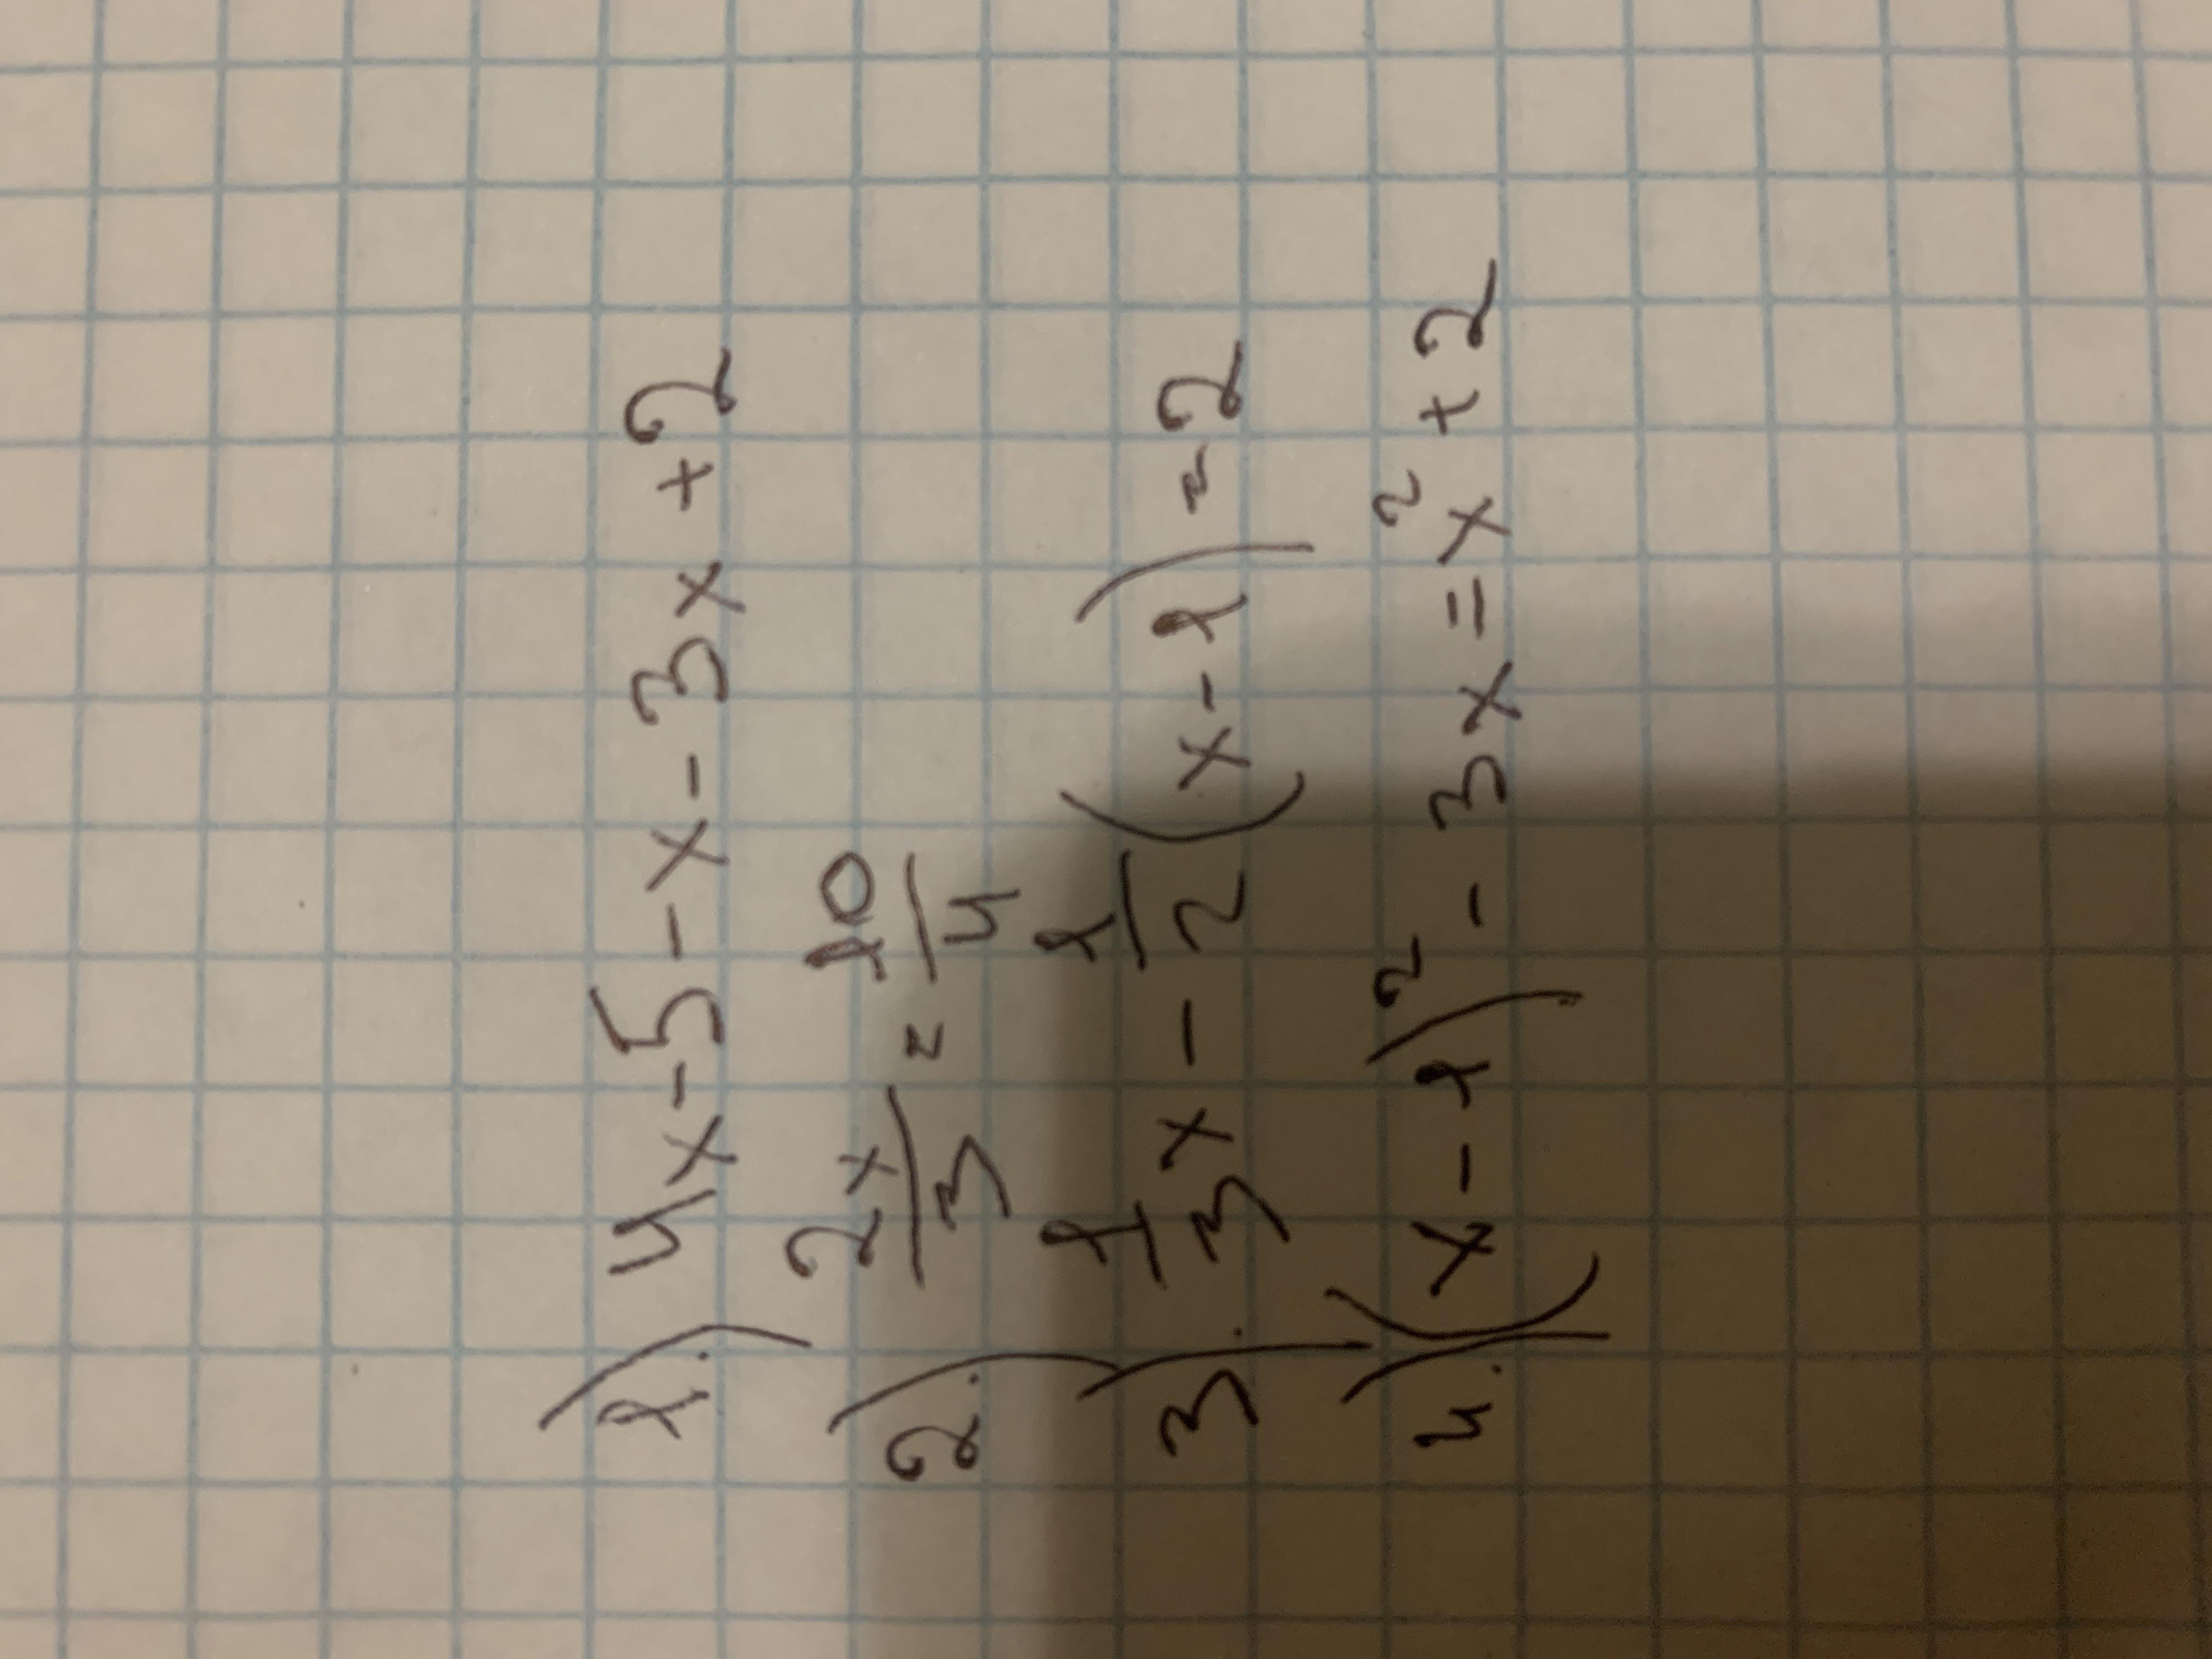 1.) 4x-5-x-3x+2
2.) 2x/3 = 10/4
3.) 1/3 x - 1/2 (x-1) = 2
4.) (x-1)² - 3x = x² + 2